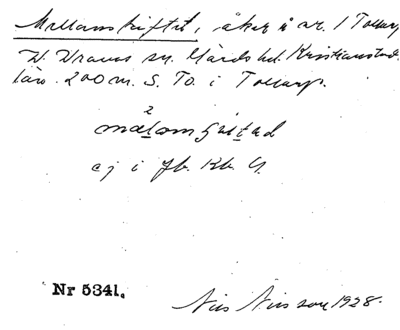 Mellanskiftet, åker å nr. 1 Tollarp
V. Vrams sn. Gärds hd. Kristianstads
län. 200 m. S. To. i Tollarp.
ej i Jb. Kb. G.
Nr 5341.
Nils Nilsson 1928.